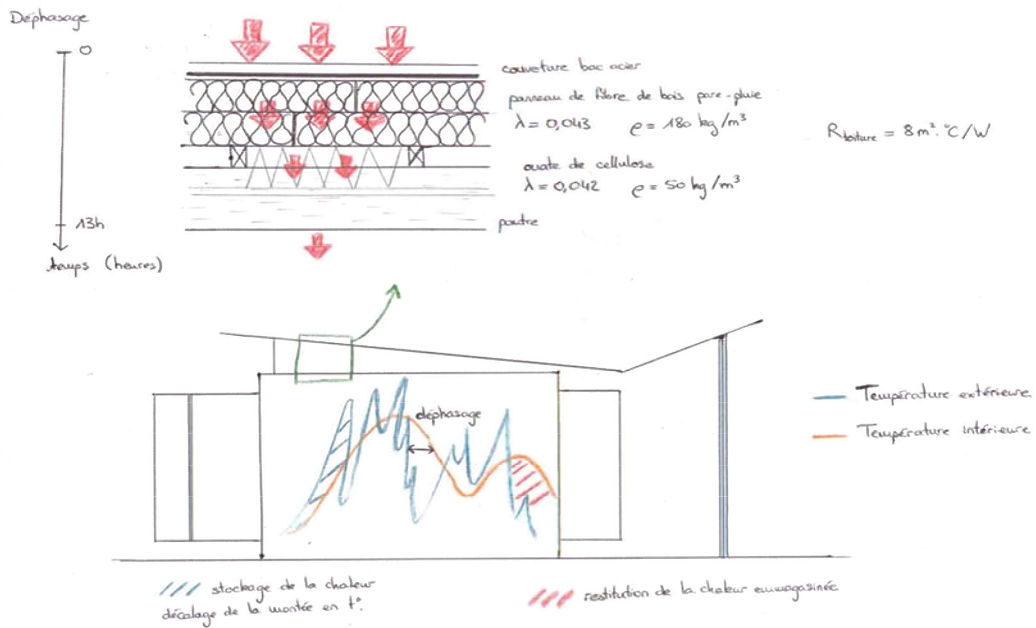 Déphasage
0
13h
temps (heures)
couverture bac acier
panneau de fibre de bois pare-pluie
λ = 0,043 ρ = 180 kg/m³
ouate de cellulose
λ = 0,042 ρ = 50 kg/m³
poutre
Rtoiture = 8 m². °C/W
déphasage
Température extérieure
Température intérieure
stockage de la chaleur
décalage de la montée en t°.
restitution de la chaleur emmagasinée